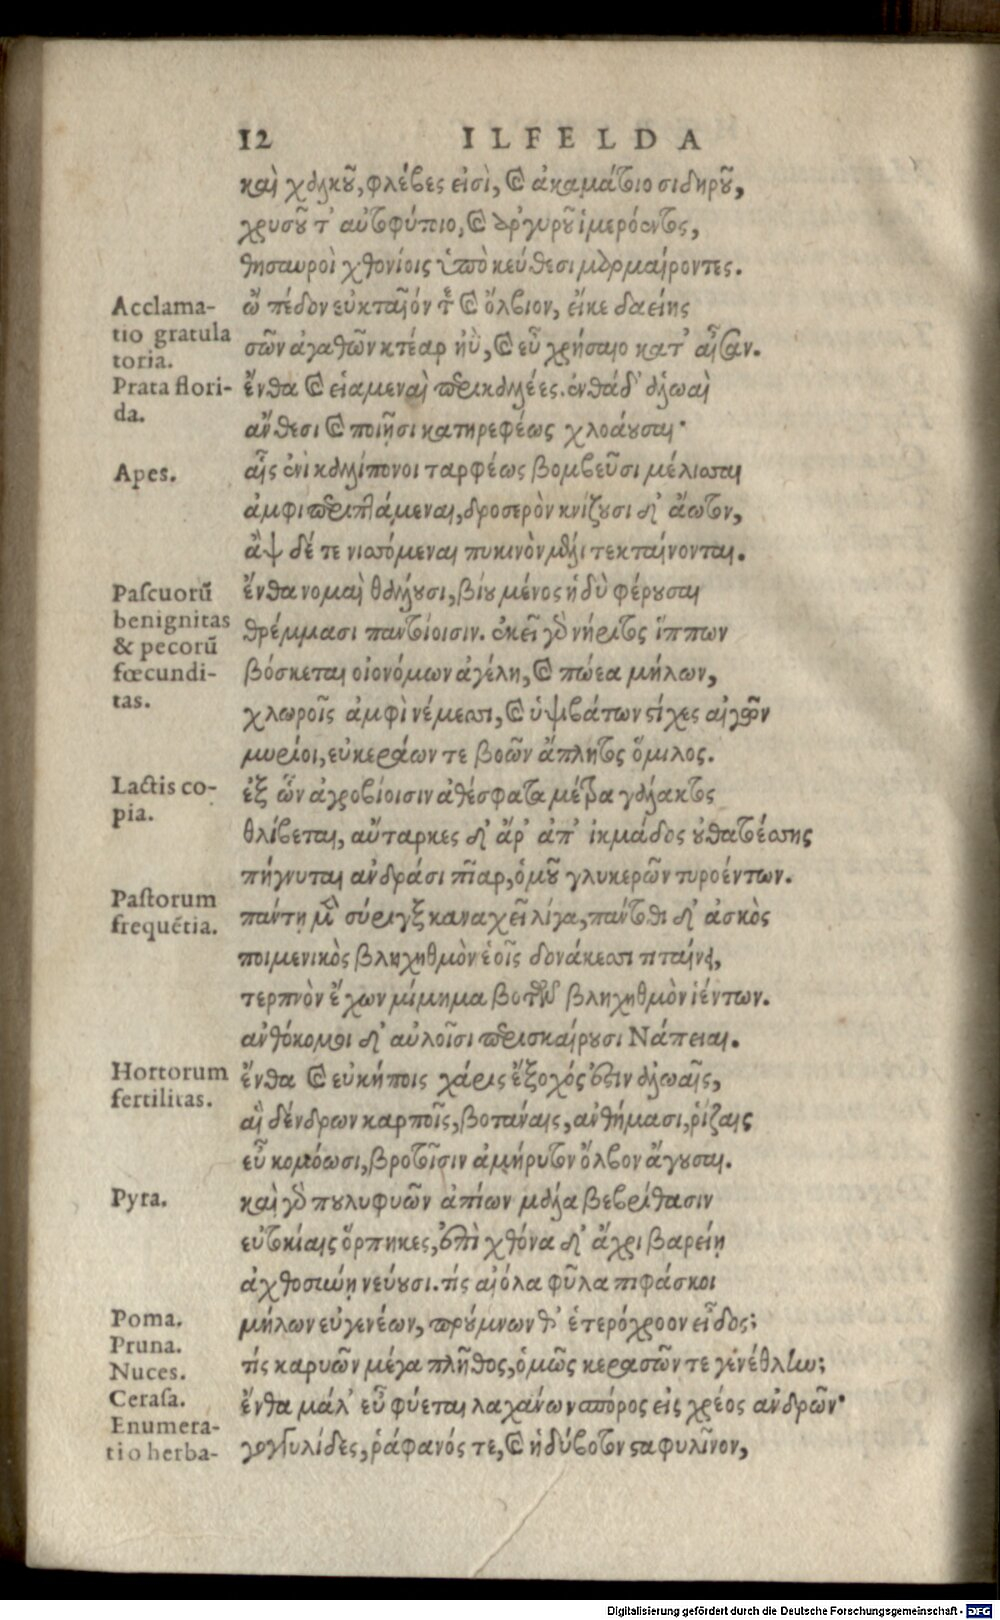 12 ILFELDA
καὶ χαλκοῦ, φλέβες εἰσὶ, καὶ ἀκαμάτοιο σιδηροῦ,
χρυσοῦ τ' αὐτοφύτοιο, καὶ ἀργυροῦ ἱμερόεντος,
θησαυροὶ χθονίοις ὑπὸ κεύθεσι μαρμαίροντες.
Acclama-
tio gratula
toria.
ὦ πέδον εὐκταῖόν τε καὶ ὄλβιον, εἴκε δαείης
σῶν ἀγαθῶν κτέαρ ἠῢ, καὶ εὖ χρήσαιο κατ' αἶσαν.
Prata flori-
da.
ἔνθα καὶ εἱαμεναὶ περικαλλέες. ἐνθάδ' ἀλωαὶ
ἄνθεσι καὶ ποιῇσι κατηρεφέως χλοάουσαι·
Apes.
αἷς ἐνὶ καλλίπονοι ταρφέως βομβεῦσι μέλισσαι
ἀμφιπεριπλάμεναι, δροσερὸν κνίζουσι δ' ἄωτον,
ἂψ δέ τε νισσόμεναι πυκινὸν μέλι τεκταίνονται.
Pascuorũ
benignitas
& pecorũ
fœcundi-
tas.
ἔνθα νομαὶ θάλλουσι, βίου μένος ἡδὺ φέρουσαι
θρέμμασι παντοίοισιν. ἐκεῖ γὰρ νήριτος ἵππων
βόσκεται οἰονόμων ἀγέλη, καὶ πώεα μήλων,
χλωροῖς ἀμφινέμεσσι, καὶ ὑψιβάτων στίχες αἰγῶν
μυρίοι, εὐκεράων τε βοῶν ἄπλητος ὅμιλος.
Lactis co-
pia.
ἐξ ὧν ἀγροβίοισιν ἀθέσφατα μέτρα γάλακτος
θλίβεται, αὔταρκες δ' ἄρ' ἀπ' ἰκμάδος οὐθατοέσσης
πήγνυται ἀνδράσι πῖαρ, ὁμοῦ γλυκερῶν τυροέντων.
Pastorum
frequẽtia.
πάντη μὲν σύριγξ καναχεῖ λίγα, πάντοθι δ' ἀσκὸς
ποιμενικὸς βληχηθμὸν ἑοῖς δονάκεσσι
τερπνὸν ἔχων μίμημα βοτῶν βληχηθμὸν ἱέντων.
ἀνθόκομοι δ' αὐλοῖσι περισκαίρουσι Νάπειαι.
Hortorum
fertilitas.
ἔνθα καὶ εὐκήποις χάρις ἔξοχός ἐστιν ἀλωαῖς,
αἳ δένδρων καρποῖς, βοτάναις, ἀνθήμασι, ῥίζαις
εὖ κομόωσι, βροτοῖσιν ἀμήρυτον ὄλβον ἄγουσαι.
Pyra.
καὶ γὰρ πουλυφυῶν ἀπίων μάλα βεβρίθασιν
εὐτοκίαις ὅρπηκες, ἐπὶ χθόνα δ' ἄχρι βαρείῃ
ἀχθοσύνῃ νεύουσι. τίς αἰόλα φῦλα πιφάσκοι
Poma.
Pruna.
μήλων εὐγενέων, προύμνων θ' ἑτερόχροον εἶδος;
Nuces.
τίς καρυῶν μέγα πλῆθος, ὁμῶς κερασῶν τε γενέθλην;
Cerasa.
Enumera-
tio herba-
ἔνθα μάλ' εὖ φύεται λαχάνων σπόρος εἰς χρέος ἀνδρῶν·
γογγυλίδες, ῥάφανός τε, καὶ ἡδύβοτον σταφυλῖνον,
Digitalisierung gefördert durch die Deutsche Forschungsgemeinschaft - DFG